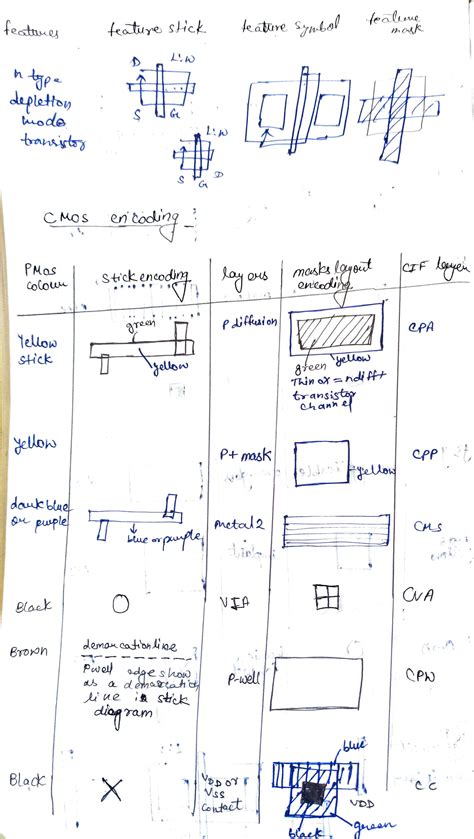 features feature stick feature symbol feature mask
n type depletion mode transistor
D L:W
S G
L:W
S G D
CMOS encoding
PMos colour stick encoding layers masks layout encoding CIF layer
Yellow stick green yellow P diffusion green yellow CPA
Thinox = ndiff + transistor channel
Yellow P+ mask yellow CPP
dark blue or purple blue or purple metal 2 CMS
Black VIA CVA
Brown demarcation line
P well edge show as a demarcation line in stick diagram
P-well CPW
Black VDD or VSS contact blue VDD CC
black green